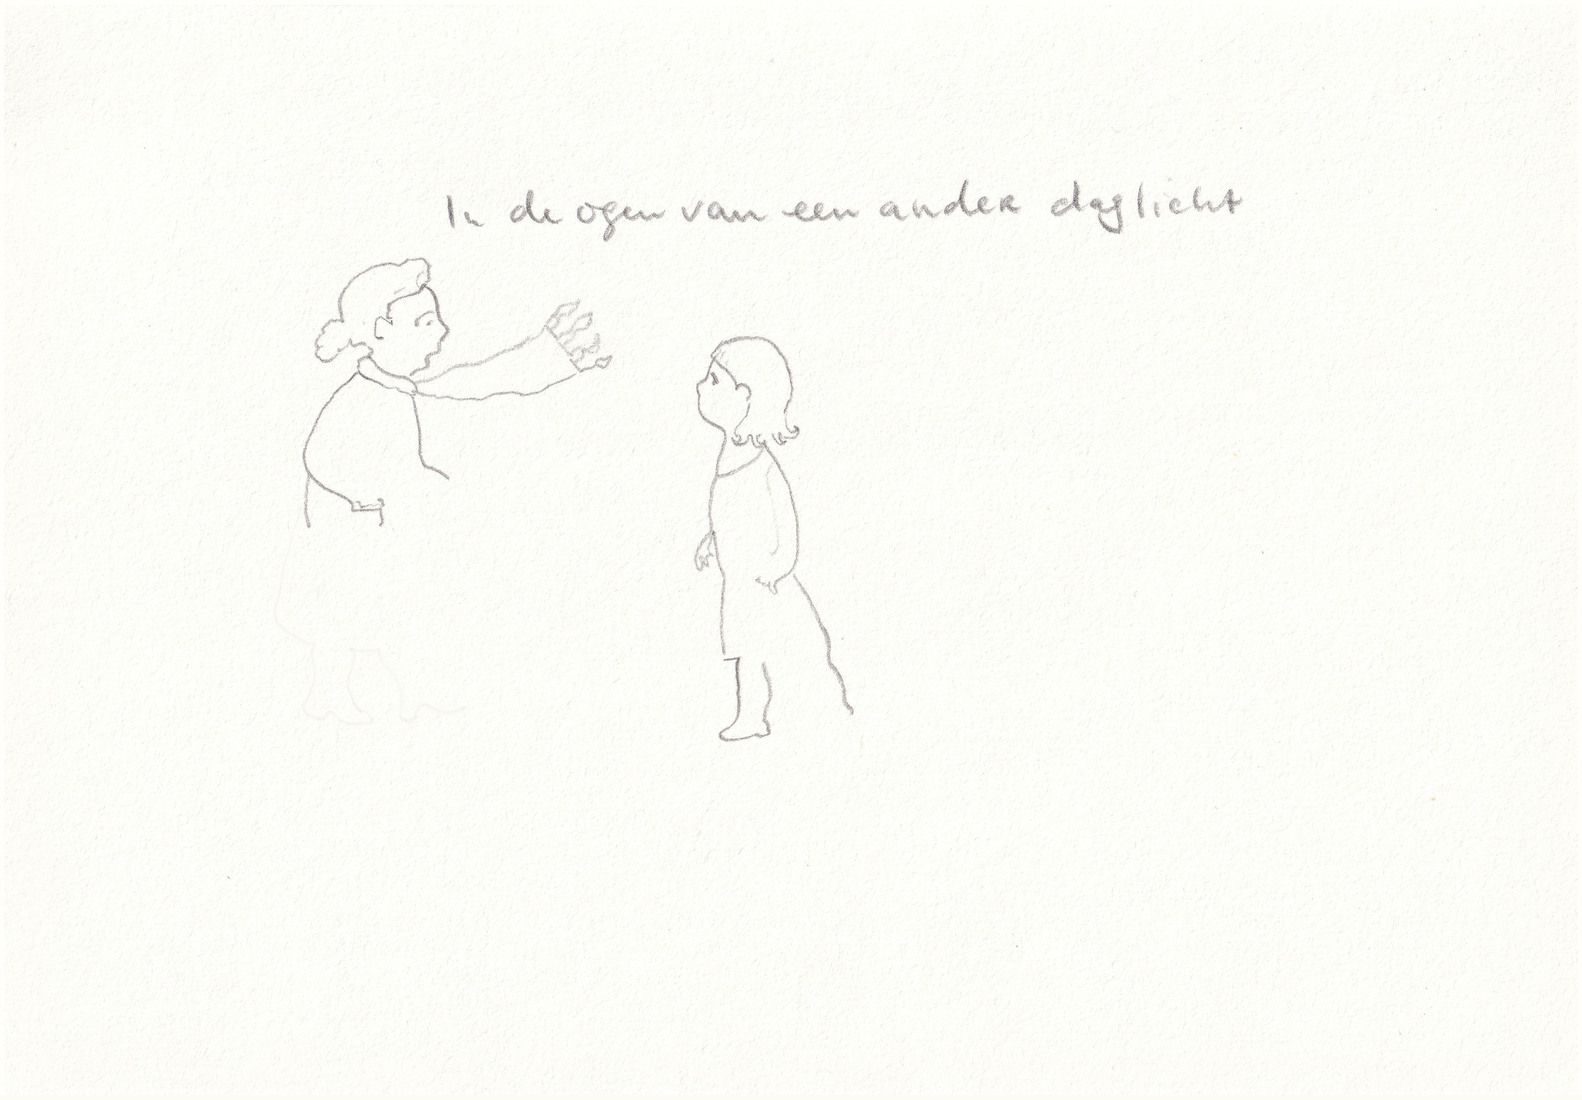 In de ogen van een ander daglicht